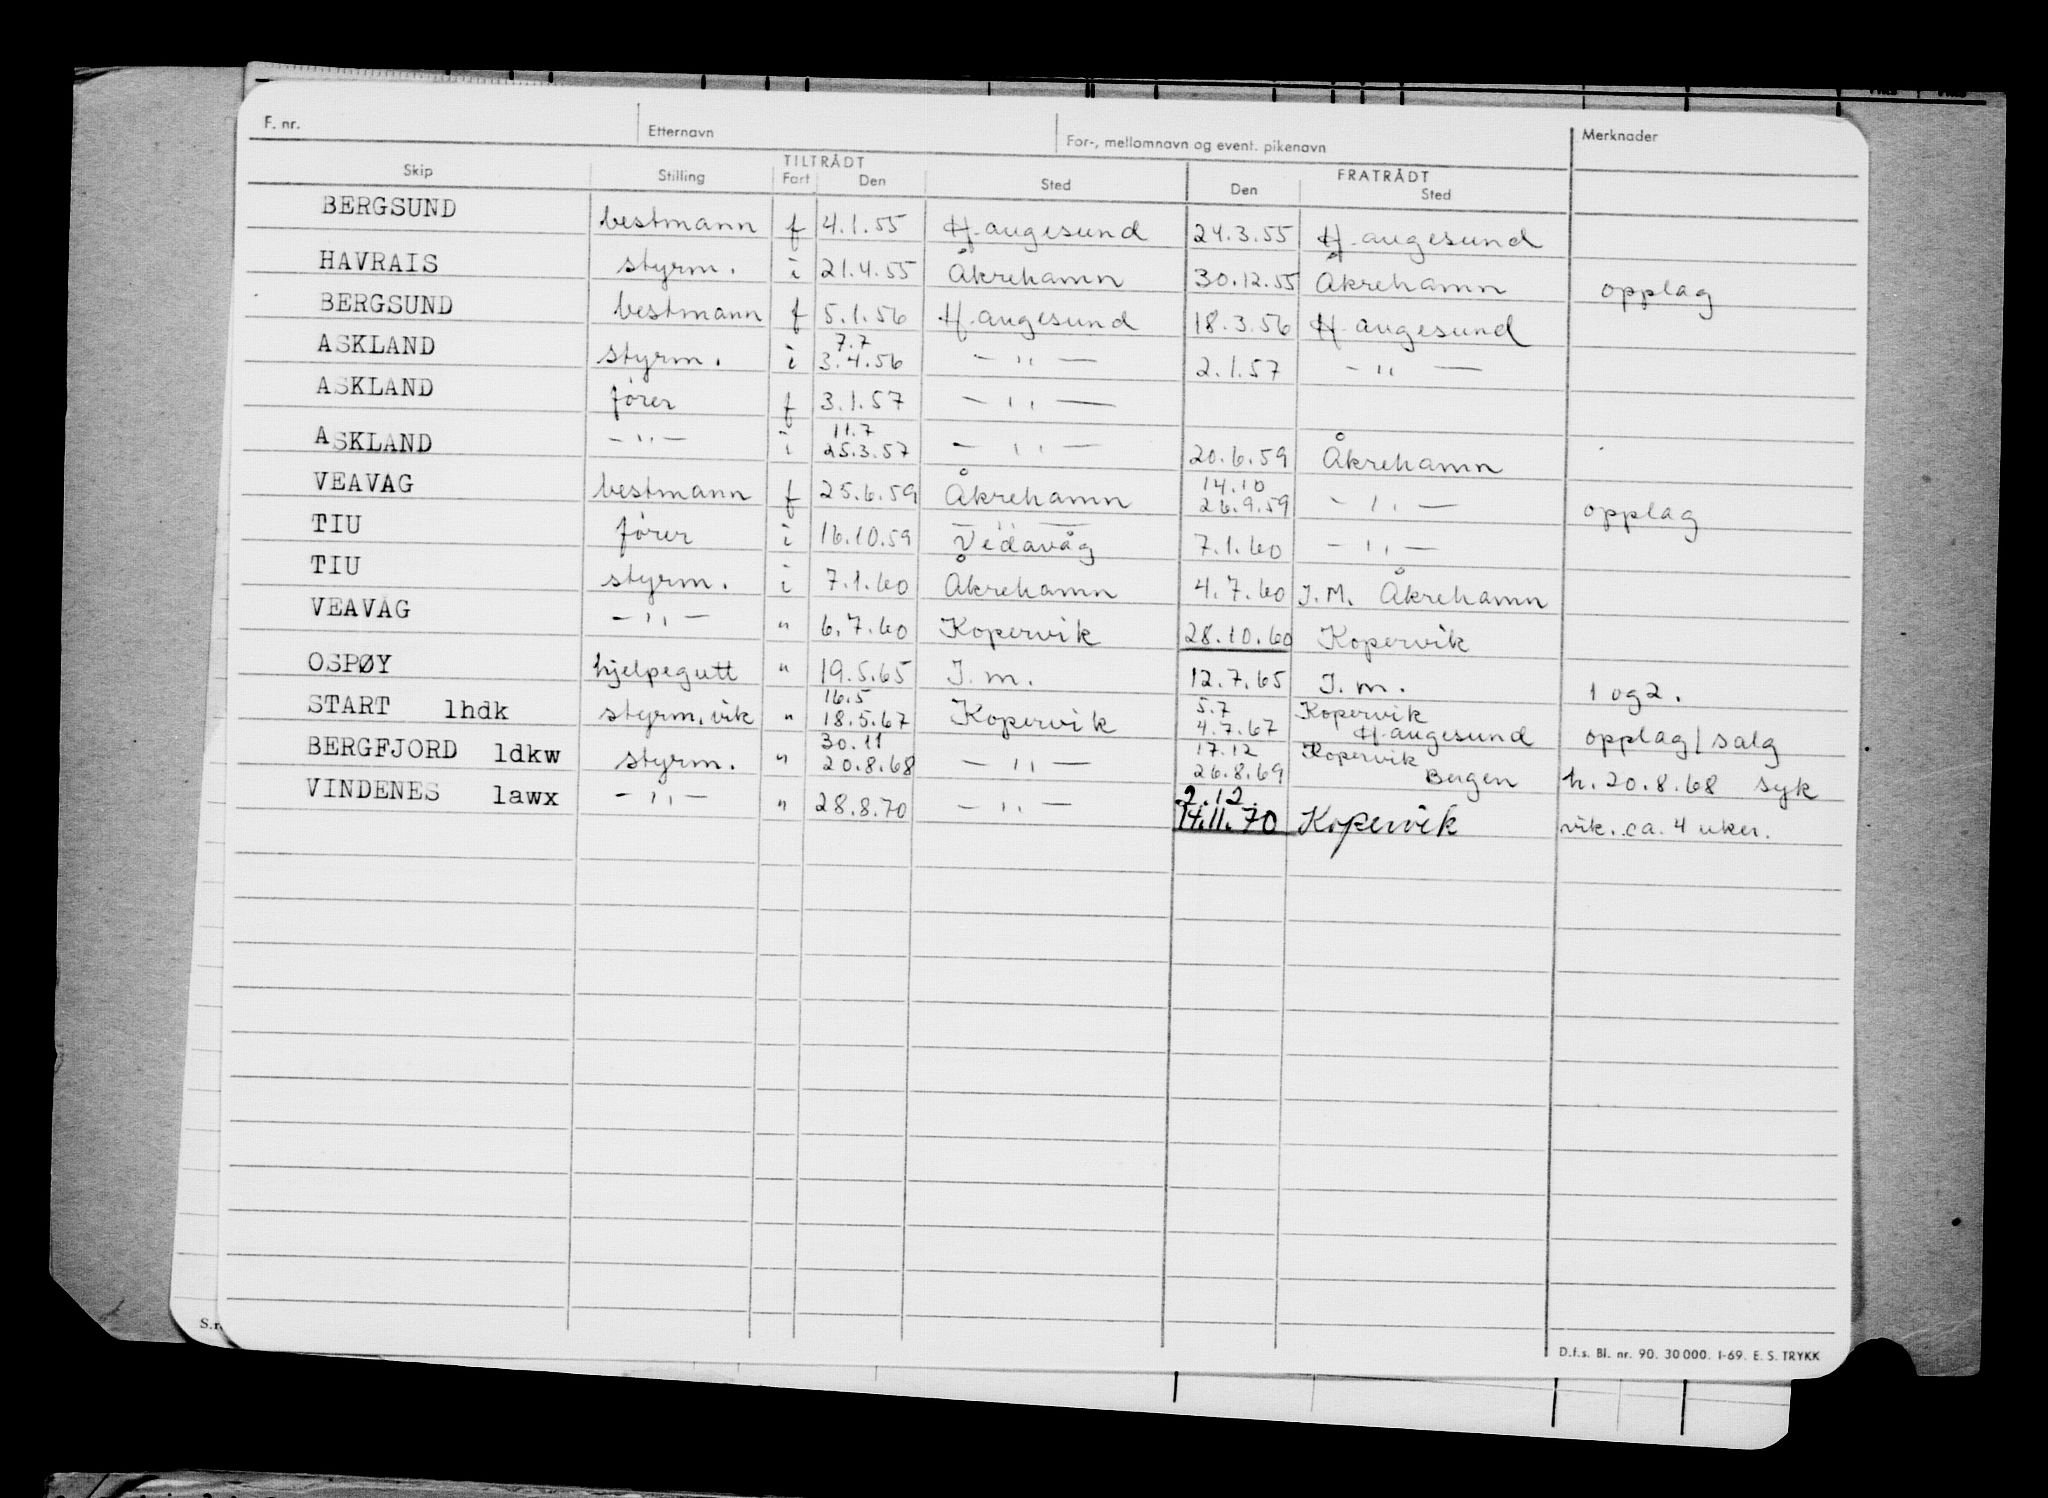 F. nr. Etternavn For-, mellomnavn og event. pikenavn Merknader
TILTRÅDT FRATRÅDT
Skip Stilling Fart Den Sted Den Sted
BERGSUND bestmann f 4.1.55 Haugesund 24.3.55 Haugesund
HAVRAIS styrm. i 21.4.55 Åkrehamn 30.12.55 Åkrehamn opplag
BERGSUND bestmann f 5.1.56 Haugesund 18.3.56 Haugesund
7.7
ASKLAND styrm. i 3.4.56 — " — 2.1.57 — " —
ASKLAND fører f 3.1.57 — " —
11.7
ASKLAND — " — i 25.3.57 — " — 20.6.59 Åkrehamn
14.10
VEAVAG bestmann f 25.6.59 Åkrehamn 26.9.59 — " — opplag
— " —
TIU fører i 16.10.59 Vedavåg 7.1.60 — " —
TIU styrm. i 7.1.60 Åkrehamn 4.7.60 I.M. Åkrehamn
VEAVÅG — " — " 6.7.60 Kopervik 28.10.60 Kopervik
OSPØY hjelpegutt " 19.5.65 I.m. 12.7.65 I.m. 1 og 2.
16.5 5.7 Kopervik
START lhdk styrm. vik " 18.5.67 Kopervik 4.7.67 Haugesund opplag/salg
30.11 17.12 Kopervik
BERGFJORD ldkw styrm. " 20.8.68 — " — 26.8.69 Bergen h. 20.8.68 syk
2.12.
VINDENES lawx — " — " 28.8.70 — " — 14.11.70 Kopervik vik. ca. 4 uker.
S.r.
D.f.s. Bl. nr. 90. 30 000. 1-69. E. S. TRYKK